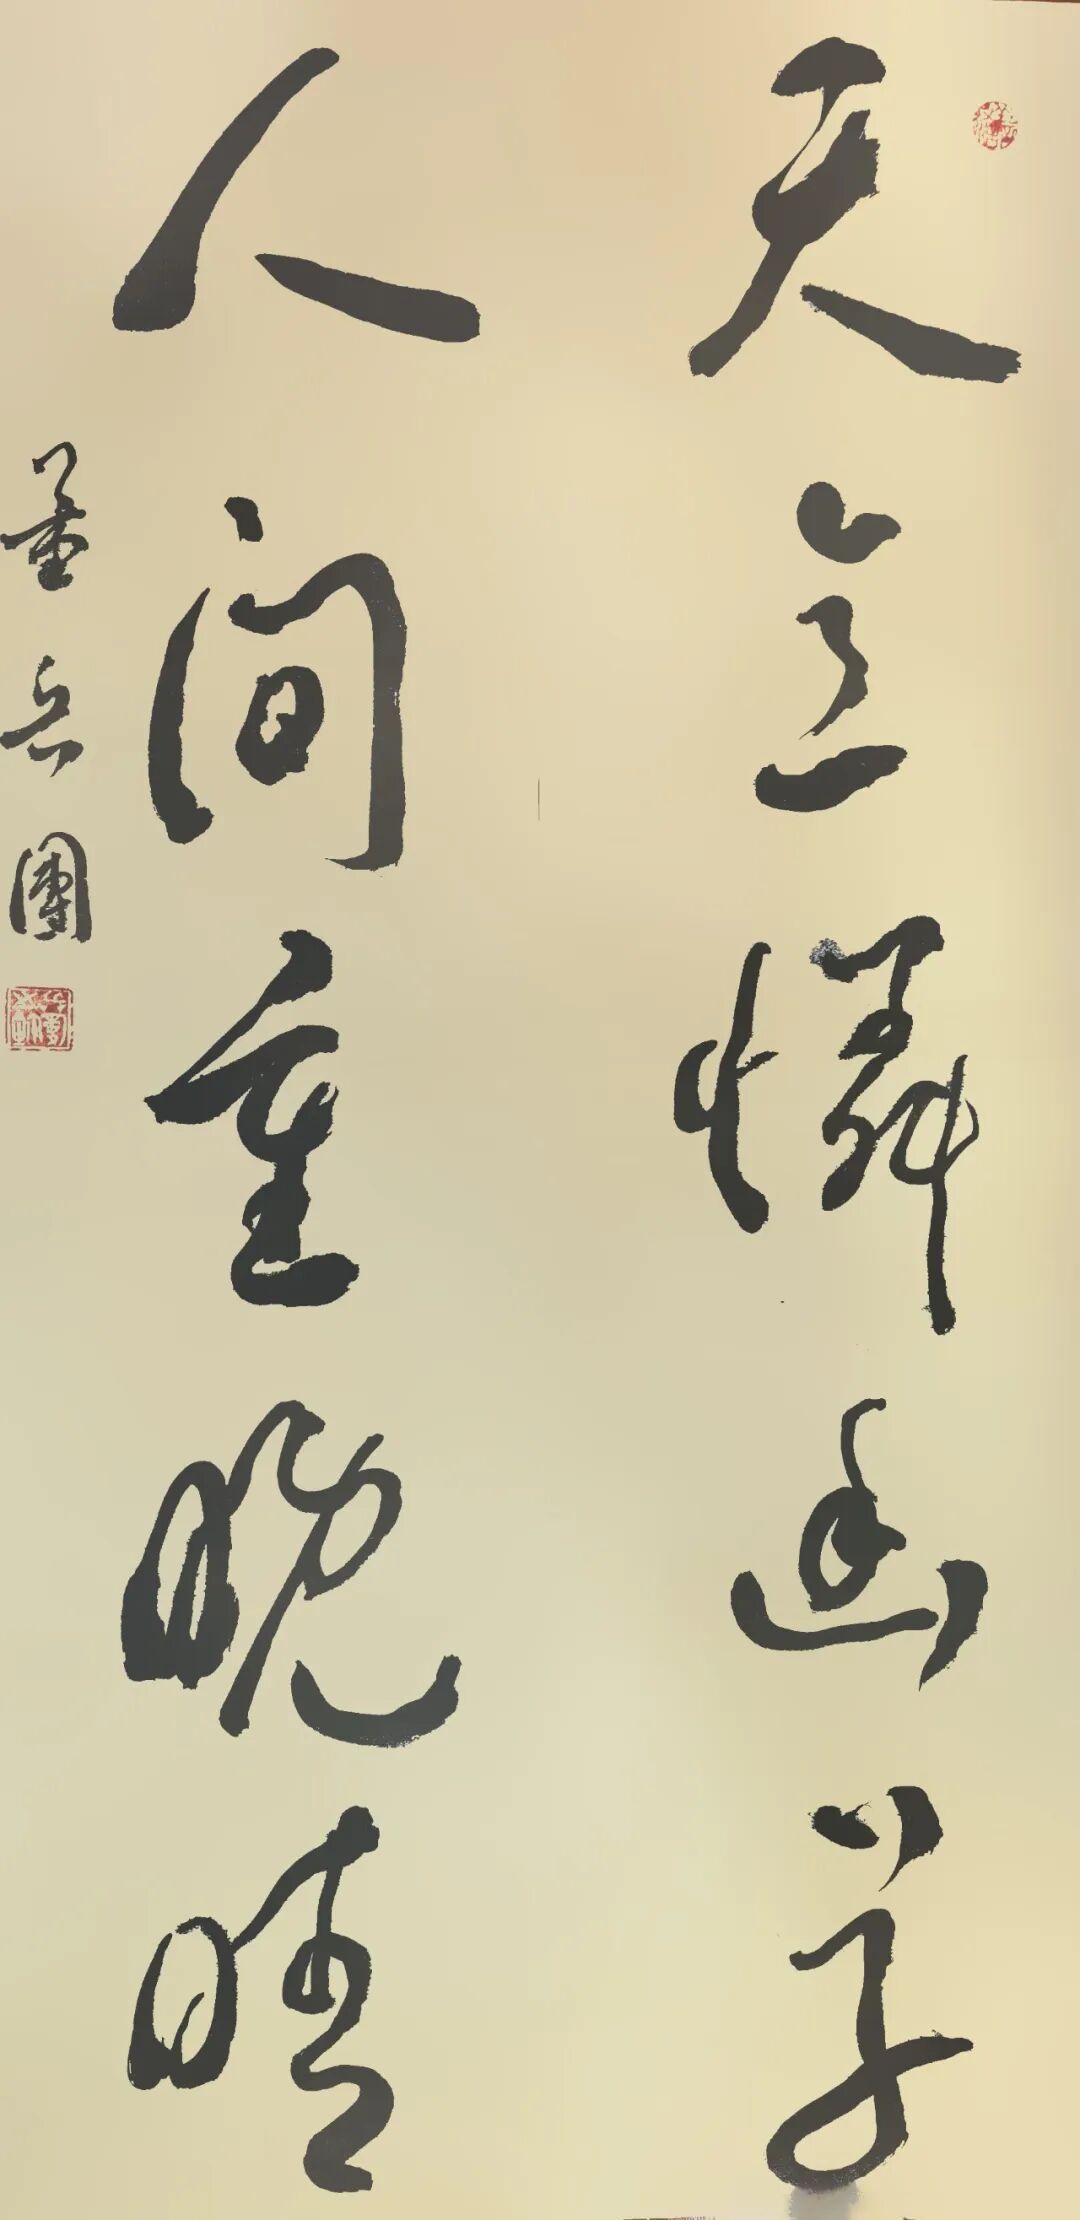 天意憐幽草
人间重晚晴
董岳團